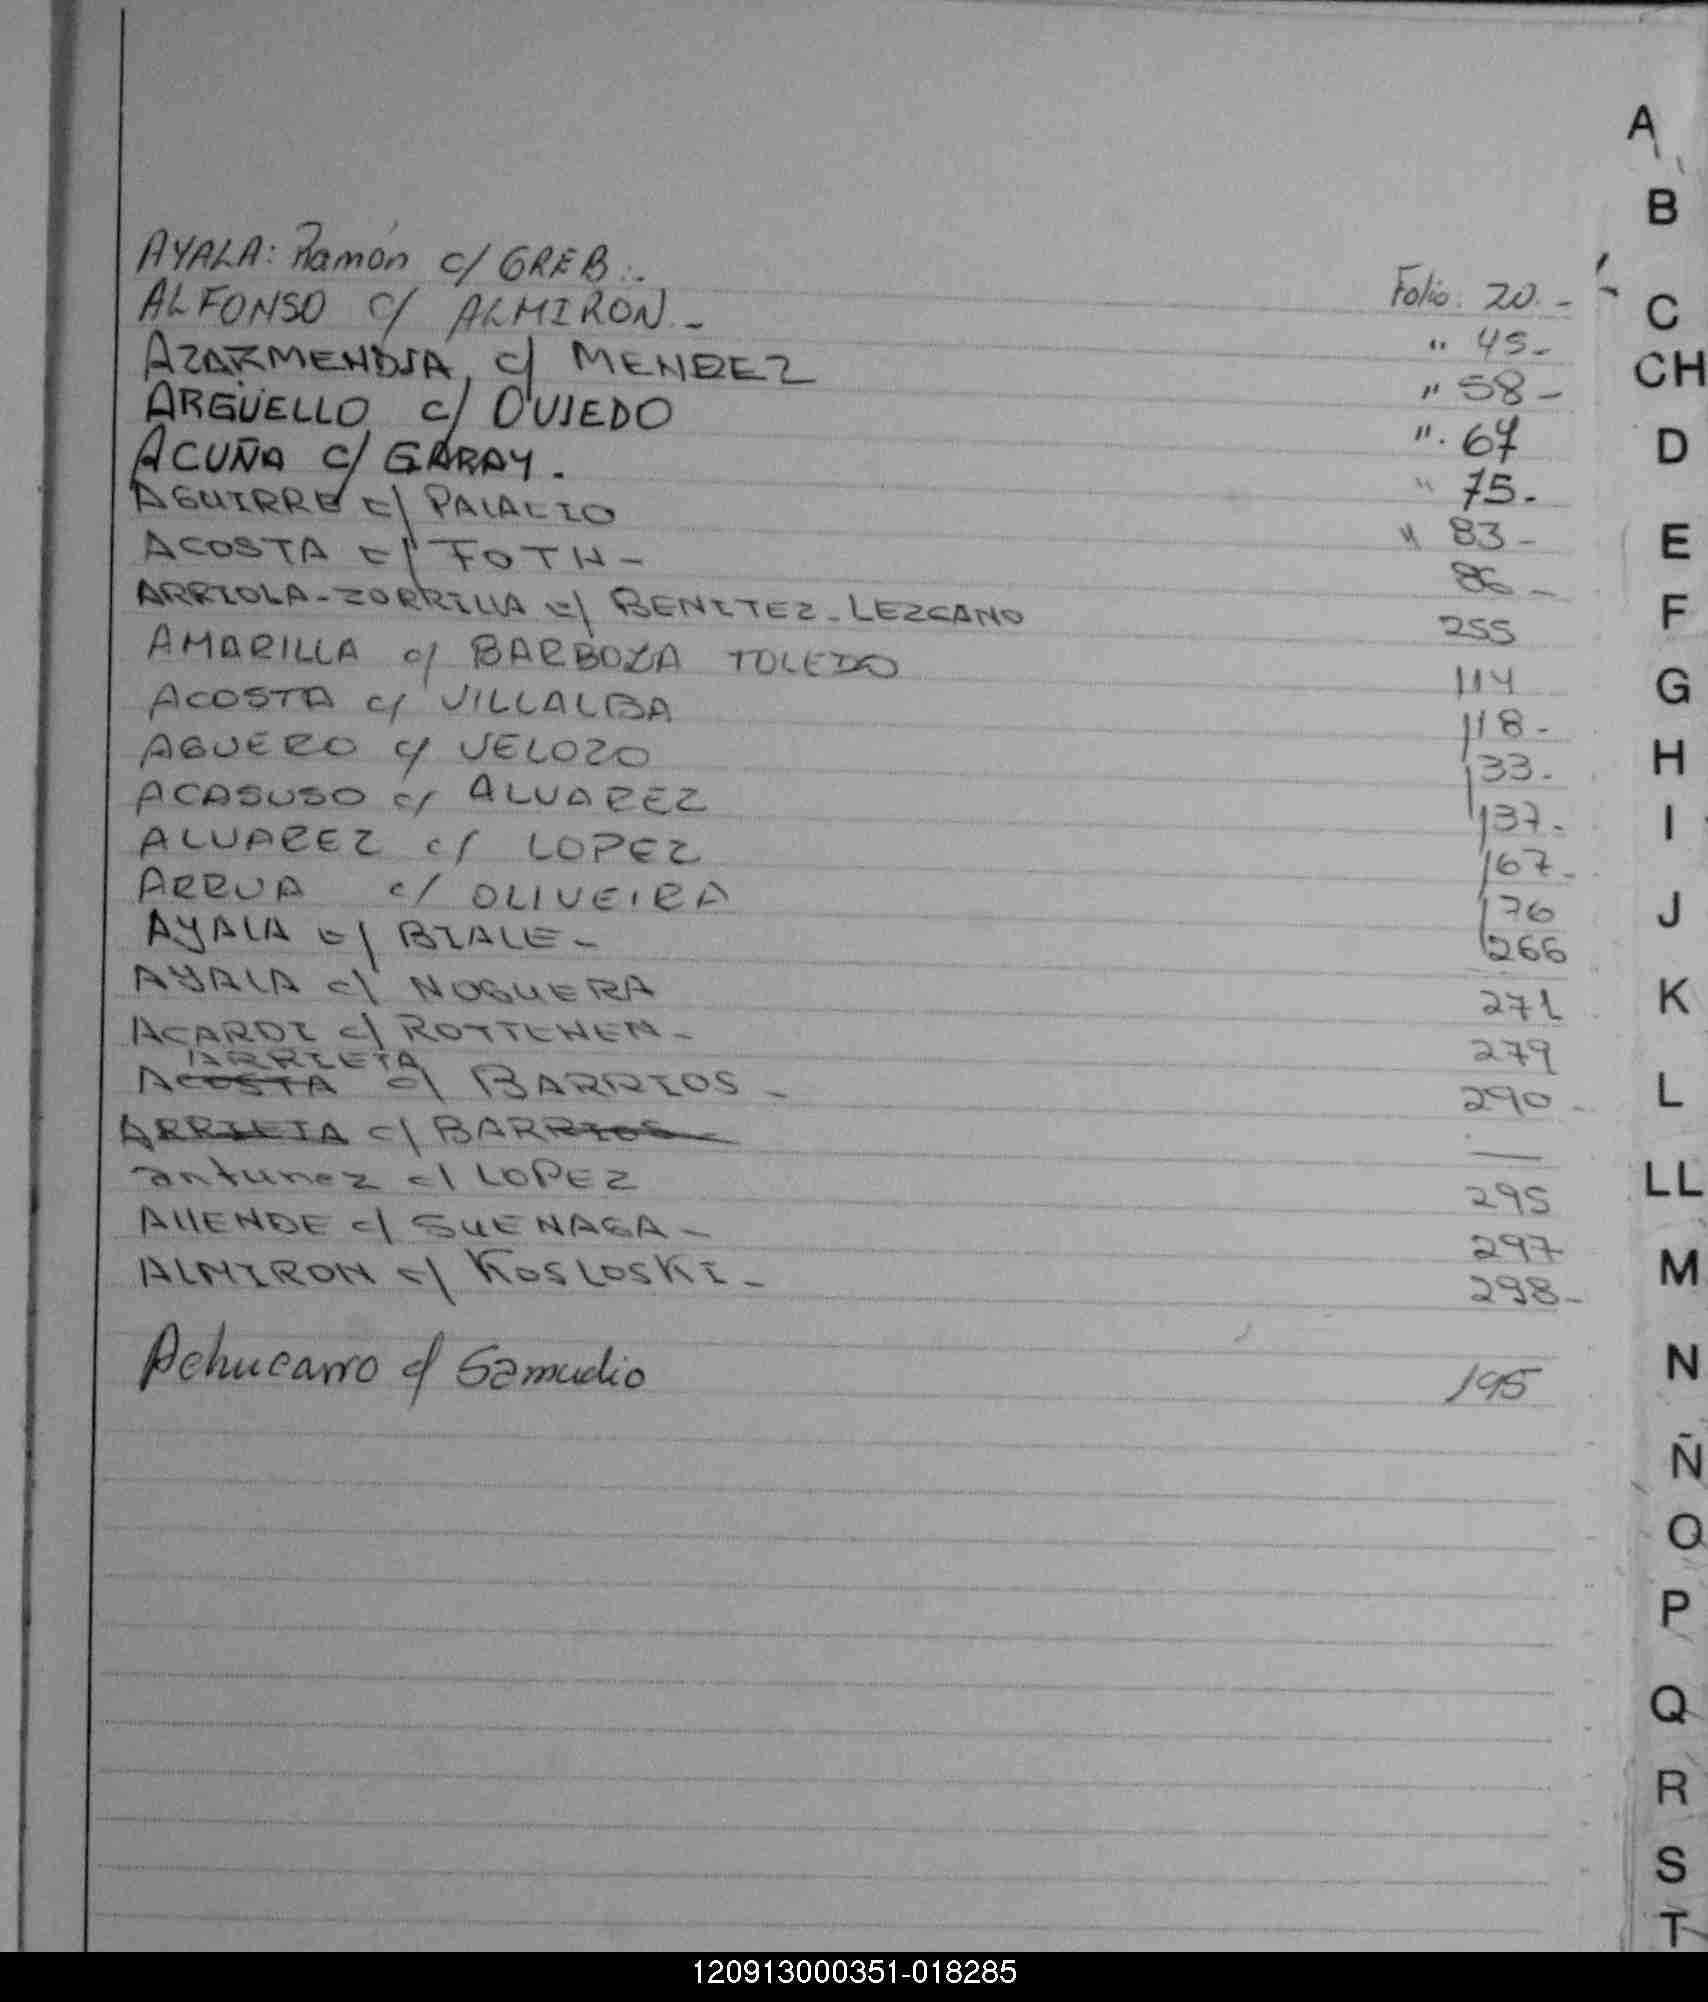 A
B
AYALA: Ramón c/ GREB.. Folio: 20.-
C
ALFONSO c/ ALMIRON.- " 45-
CH
AZARMENDIA c/ MENDEZ " 58-
ARGÜELLO c/ OVIEDO ". 67
D
ACUÑA c/ GARAY. " 75.
AGUIRRE c/ PALACIO " 83-
E
ACOSTA c/ FOTH- 86-
ARRIOLA-ZORRILLA c/ BENITEZ-LEZCANO 255
F
AMARILLA c/ BARBOZA TOLEDO 114
G
ACOSTA c/ VILLALBA 118-
AGUERO c/ VELOZO 133.
H
ACASUSO c/ ALVAREZ 137-
I
ALVAREZ c/ LOPEZ 167-
ARRUA c/ OLIVEIRA 176
J
AYALA c/ BIALE- 266
AYALA c/ NOGUERA 271
K
ACARDI c/ ROTTEHEN- 279
ARRIETA
ACOSTA c/ BARRIOS- 290-
L
ARRIETA c/ BARRIOS —
antunez c/ LOPEZ 295
LL
ALLENDE c/ SUENAGA- 297
M
ALMIRON c/ KOSLOSKI- 298-
N
Achucarro c/ Samudio 195
Ñ
O
P
Q
R
S
T
120913000351-018285